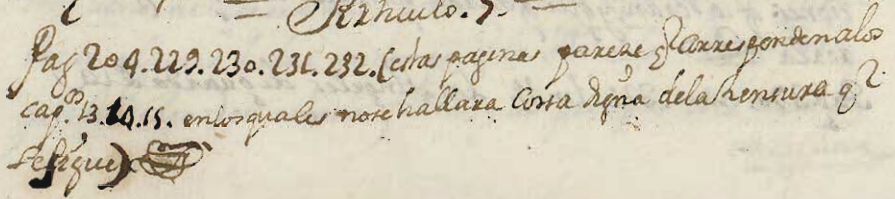 Articulo. 7.
Pag 204. 229. 230. 231. 232. (estas paginas parece q̃ corresponden alos
cap.os 13. 14. 15. enlos quales nose hallara Cossa digna dela Censura q̃
sesigue)